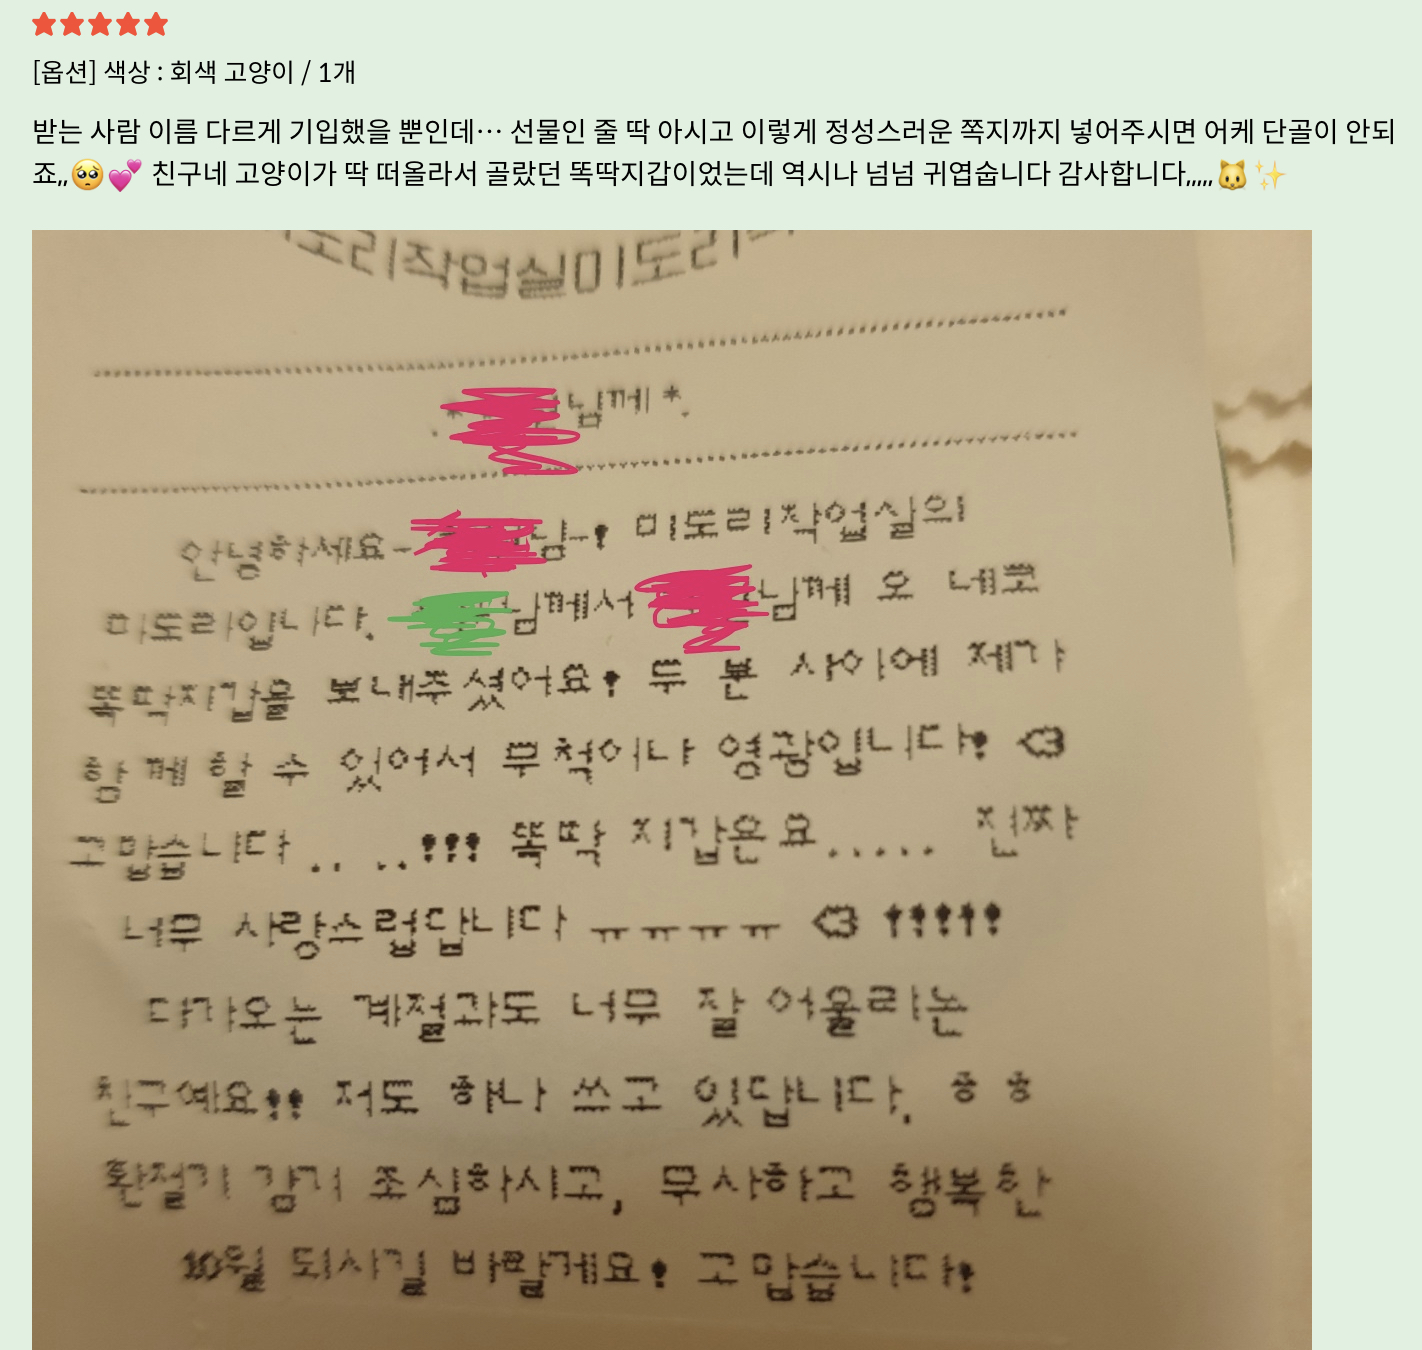 [옵션] 색상 : 회색 고양이 / 1개
받는 사람 이름 다르게 기입했을 뿐인데… 선물인 줄 딱 아시고 이렇게 정성스러운 쪽지까지 넣어주시면 어케 단골이 안되
죠,,🥺💕 친구네 고양이가 딱 떠올라서 골랐던 똑딱지갑이었는데 역시나 넘넘 귀엽숩니다 감사합니다,,,,,🐱✨
도리작업실미도리
.* 님께 *.
안녕하세요- 님-! 미도리작업실의
미도리입니다. 님께서 님께 오 네코
똑딱지갑을 보내주셨어요! 두 분 사이에 제가
함께 할 수 있어서 무척이나 영광입니다! <3
고맙습니다.. ..!!! 똑딱 지갑은요..... 진짜
너무 사랑스럽답니다 ㅠㅠㅠㅠ <3 !!!!!
다가오는 계절과도 너무 잘 어울리는
친구예요!! 저도 하나 쓰고 있답니다. ㅎㅎ
환절기 감기 조심하시고, 무사하고 행복한
10월 되시길 바랄게요! 고맙습니다!